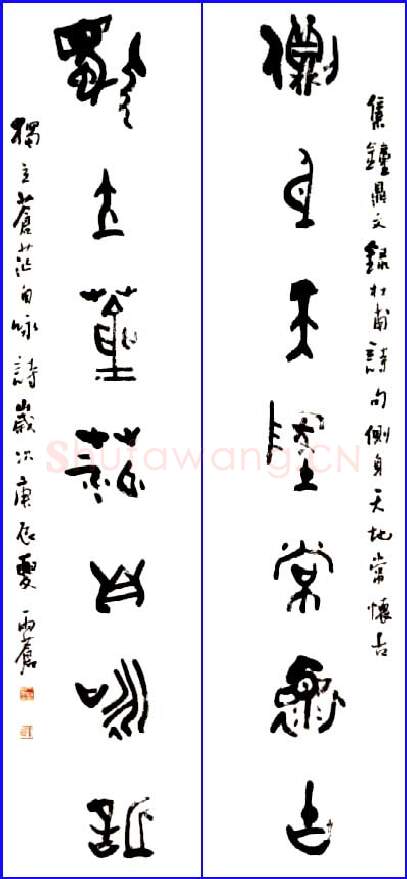 集鐘鼎文錄杜甫詩句側身天地常懷古
側身天地常懷古
獨立蒼茫自咏詩
獨立蒼茫自咏詩歲次庚辰夏雨蒼
Shufawang.CN